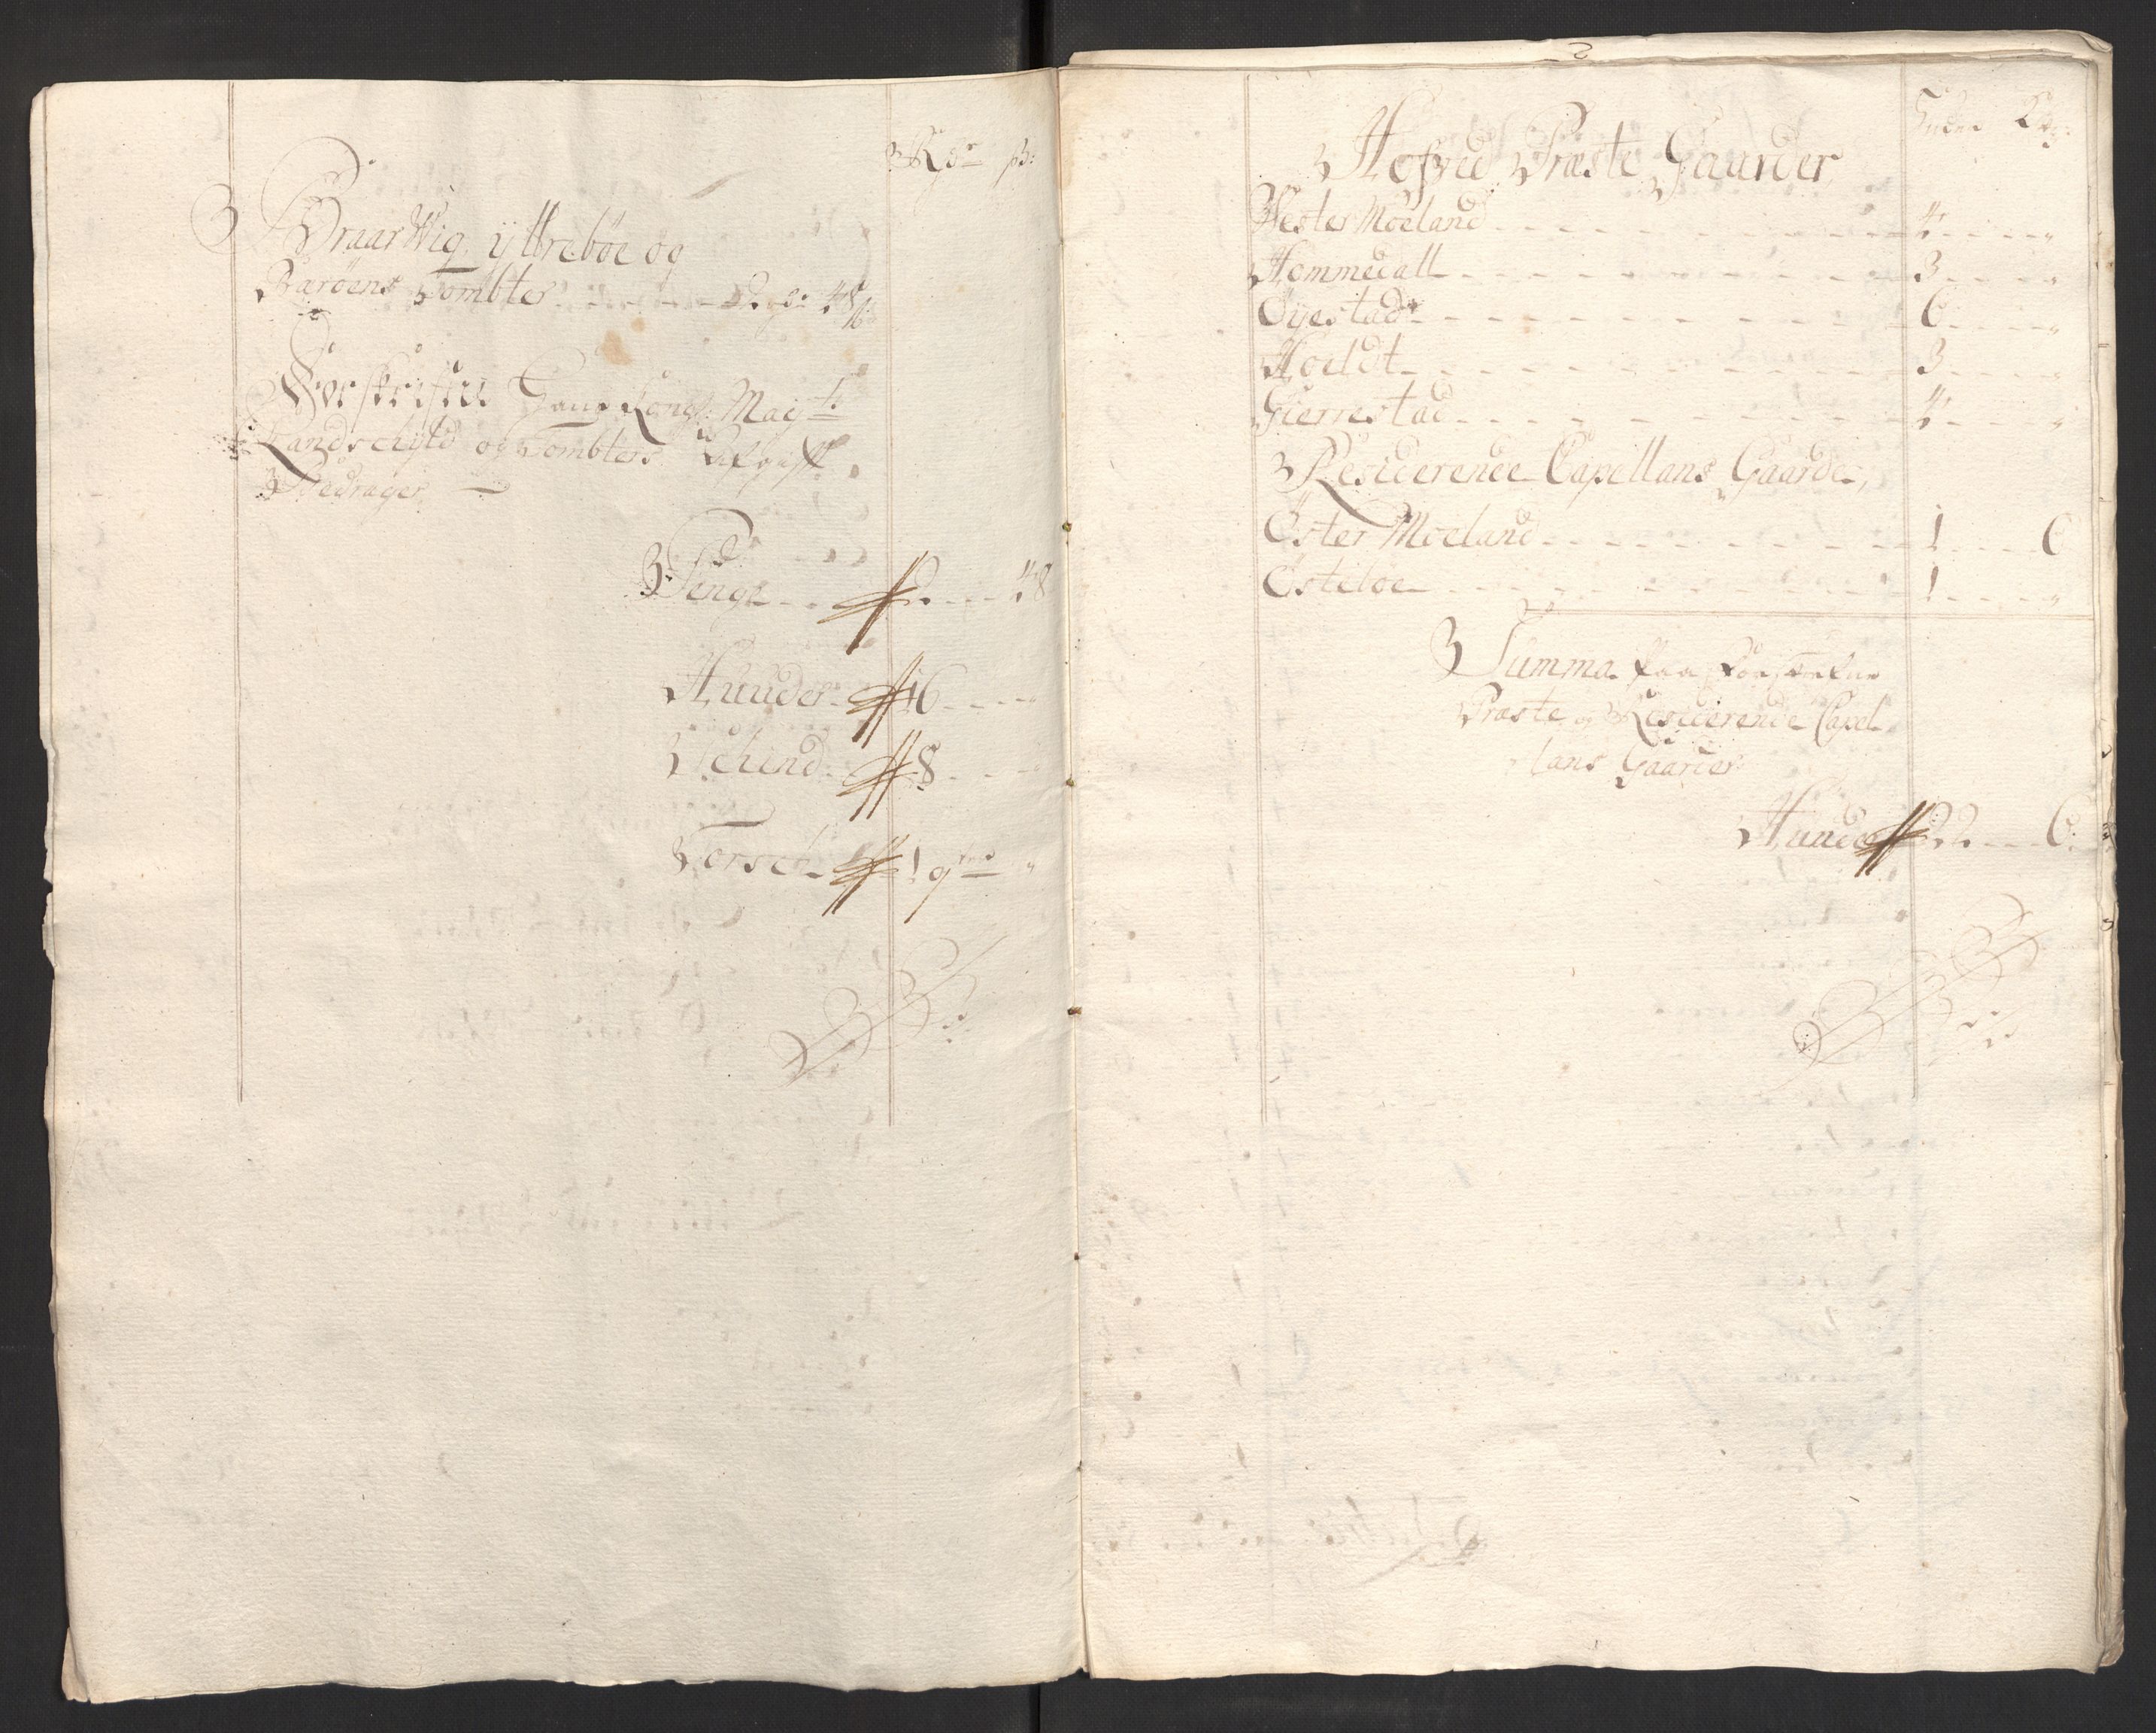 Rdr ß:
Braar Wig, yttrebøe og
Barøens Tombter - - - - 2 rdr: 48 ß
Forskrefne Hans Kongl: Mayts
Landschyld og Tombters Afgifft
Bedrager,
Penge - - 2 - - - 48
Huuder - 16 - - - "
Schind - 8 - - -
Torsch - 1 qtr "
Huder
Hofved Præste Gaarder
Wester Moeland - - - 4 - - - "
Hommedall - - - 3 - - - "
Øyestad - - - 6 - - - "
Hoeldt - - - 3 - - - "
Gierrestad - - - 4 - - - "
Residerende Capellans Gaarde,
Øster Moeland - - - 1 - - - 6
Østeløe - - - 1 - - - "
Summa paa Forskrefne
Præste og Residerende Capel
lans Gaarder
Huuder 22 - - - 6: